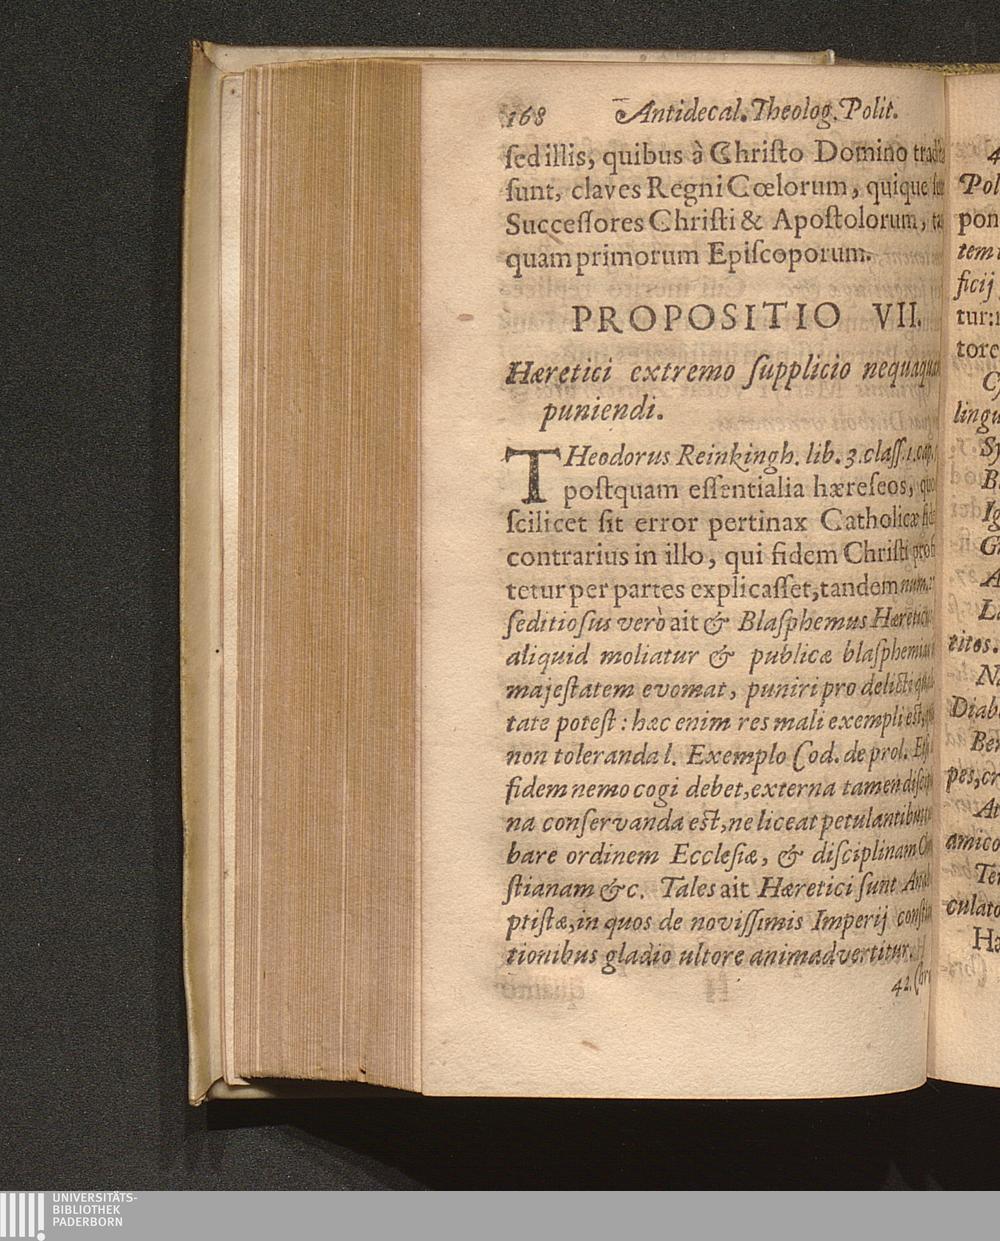 168 Antidecal. Theolog. Polit.
ſed illis, quibus à Chriſto Domino
ſunt, claves Regni Cœlorum, quique
Succeſſores Chriſti & Apoſtolorum,
quàm primorum Epiſcoporum.
PROPOSITIO VII.
Hæretici extremo ſupplicio
puniendi.
THeodorus Reinkingh. lib. 3. claſſ. 1. cap.
poſtquam eſſentialia hæreſeos,
ſcilicet ſit error pertinax Catholicæ
contrarius in illo, qui fidem Chriſti
tetur per partes explicaſſet, tandem num.
ſeditioſus verò ait & Blaſphemus
aliquid moliatur & publicæ
majeſtatem evomat, puniri pro
tate poteſt: hæc enim res mali exempli eſt,
non toleranda l. Exemplo Cod. de prol.
fidem nemo cogi debet, externa tamen
na conſervanda eſt, ne liceat
bare ordinem Eccleſiæ, & diſciplinam
ſtianam &c. Tales ait Hæretici ſunt
ptiſtæ, in quos de noviſſimis Imperij
tionibus gladio ultore animadvertitur.
42.
Pol
pon
ficij
tur:
Sy
La
Diab
Ber
pes,
amico
Ter
Hæ
UNIVERSITÄTS-
BIBLIOTHEK
PADERBORN